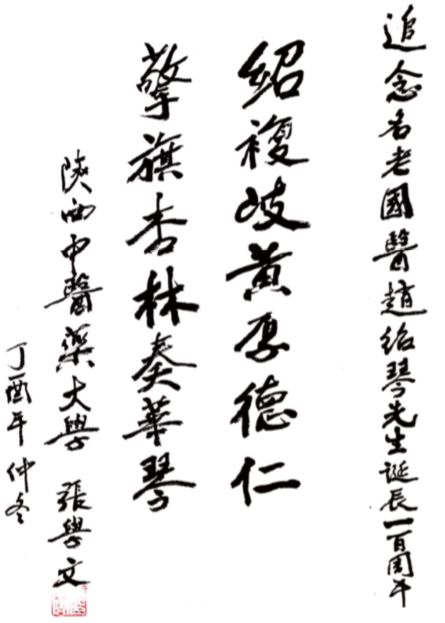 追念名老國醫趙紹琴先生誕辰一百周年
紹複岐黃厚德仁
擎旗杏林奏華琴
陝西中醫藥大學 張學文
丁酉年仲冬